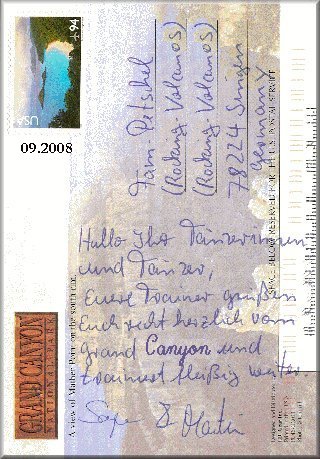 USA 94
09.2008
Fam. Petschel
(Rocking-Volcanos)
(Rocking-Volcanos)
78224 Singen
Germany
SPACE BELOW RESERVED FOR THE U.S. POSTAL SERVICE
Hallo Ihr Tänzerinnen
und Tänzer,
Eure Trainer grüßen
Euch recht herzlich vom
Grand Canyon und
trainiert fleißig weiter
Martin
GRAND CANYON
NATIONAL PARK
A view of Mather Point on the south rim.